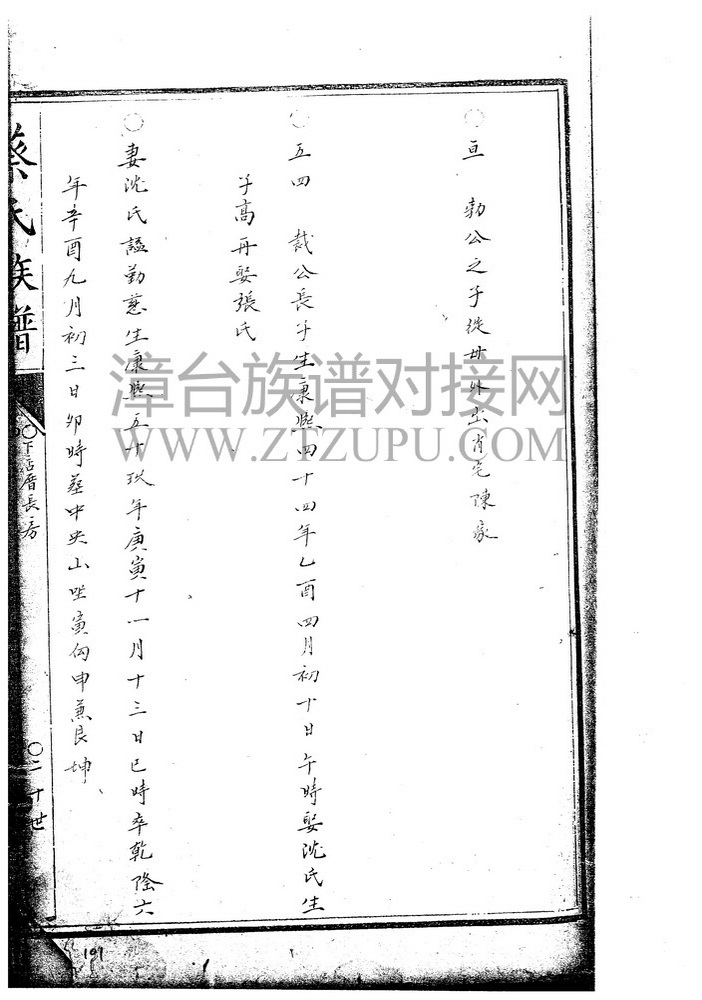 〇亘 勃公之子從母外出肖宅陳家
〇五四 裁公長子生康熙四十四年乙酉四月初十日午時娶沈氏生
子高再娶張氏
〇妻沈氏諡勤慈生康熙五十玖年庚寅十一月十三日巳時卒乾隆六
年辛酉九月初三日卯時葬中央山坐寅向申兼艮坤
蔡氏族譜
〇下 厝長房
〇二十世
101
漳台族谱对接网
WWW.ZTZUPU.COM